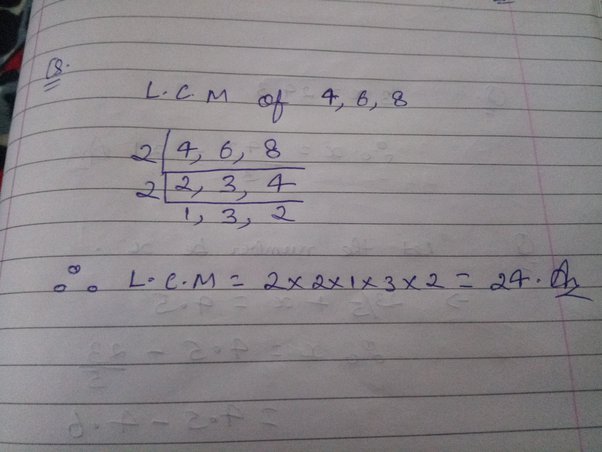 Q.
L.C.M of 4, 6, 8
2 | 4, 6, 8
2 | 2, 3, 4
1, 3, 2
∴ L.C.M = 2×2×1×3×2 = 24. Ans